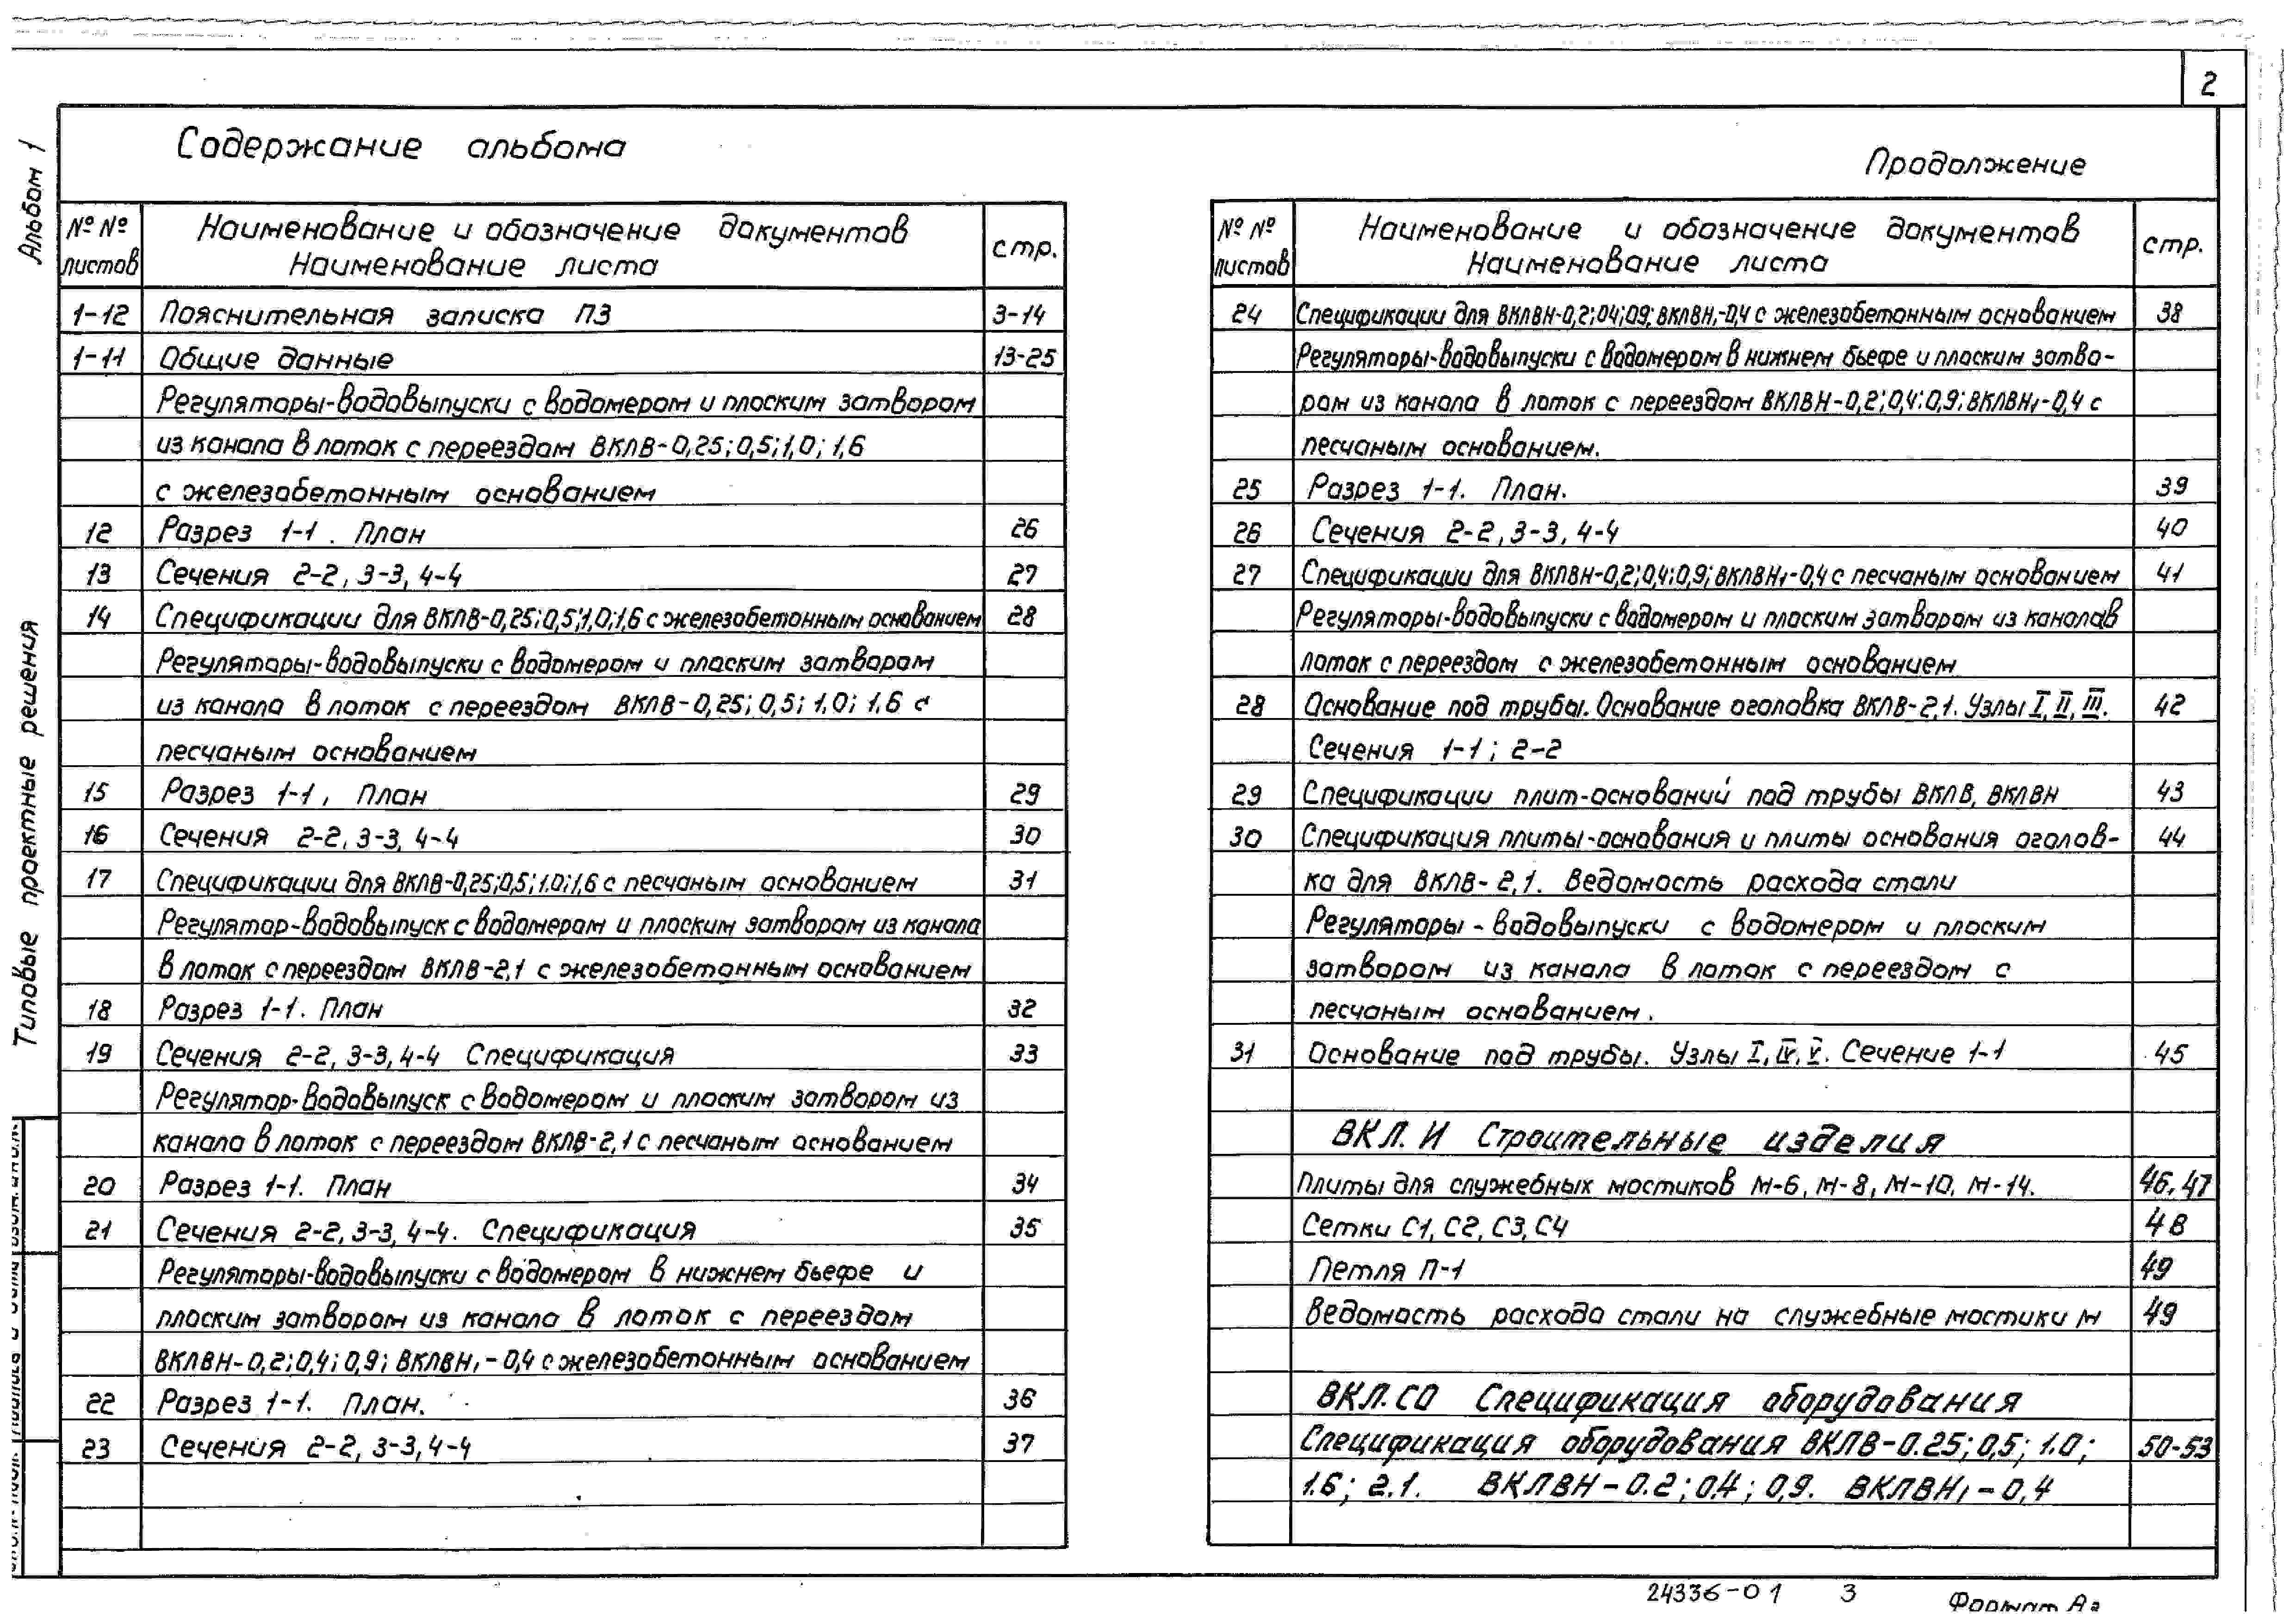 2
Альбом 1
Типовые проектные решения
Содержание альбома
№ № листов
Наименование и обозначение документов
Наименование листа
стр.
1-12 Пояснительная записка ПЗ 3-14
1-11 Общие данные 13-25
Регуляторы-водовыпуски с водомером и плоским затвором
из канала в лоток с переездом ВКЛВ-0,25; 0,5; 1,0; 1,6
с железобетонным основанием
12 Разрез 1-1. План 26
13 Сечения 2-2, 3-3, 4-4 27
14 Спецификации для ВКЛВ-0,25; 0,5; 1,0; 1,6 с железобетонным основанием 28
Регуляторы-водовыпуски с водомером и плоским затвором
из канала в лоток с переездом ВКЛВ-0,25; 0,5; 1.0; 1.6 с
песчаным основанием
15 Разрез 1-1, План 29
16 Сечения 2-2, 3-3, 4-4 30
17 Спецификации для ВКЛВ-0,25; 0,5; 1.0; 1,6 с песчаным основанием 31
Регулятор-водовыпуск с водомером и плоским затвором из канала
в лоток с переездом ВКЛВ-2,1 с железобетонным основанием
18 Разрез 1-1. План 32
19 Сечения 2-2, 3-3, 4-4 Спецификация 33
Регулятор-водовыпуск с водомером и плоским затвором из
канала в лоток с переездом ВКЛВ-2,1 с песчаным основанием
20 Разрез 1-1. План 34
21 Сечения 2-2, 3-3, 4-4. Спецификация 35
Регуляторы-водовыпуски с водомером в нижнем бьефе и
плоским затвором из канала в лоток с переездом
ВКЛВН-0,2; 0,4; 0,9; ВКЛВН₁-0,4 с железобетонным основанием
22 Разрез 1-1. План. 36
23 Сечения 2-2, 3-3, 4-4 37
Продолжение
№ № листов
Наименование и обозначение документов
Наименование листа
стр.
24 Спецификации для ВКЛВН-0,2; 04; 09; ВКЛВН₁-0,4 с железобетонным основанием 38
Регуляторы-водовыпуски с водомером в нижнем бьефе и плоским затво-
ром из канала в лоток с переездом ВКЛВН-0,2; 0,4; 0,9; ВКЛВН₁-0,4 с
песчаным основанием.
25 Разрез 1-1. План. 39
26 Сечения 2-2, 3-3, 4-4 40
27 Спецификации для ВКЛВН-0,2; 0,4; 0,9; ВКЛВН₁-0,4 с песчаным основанием 41
Регуляторы-водовыпуски с водомером и плоским затвором из канала в
лоток с переездом с железобетонным основанием
28 Основание под трубы. Основание оголовка ВКЛВ-2,1. Узлы I, II, III. 42
Сечения 1-1; 2-2
29 Спецификации плит-оснований под трубы ВКЛВ, ВКЛВН 43
30 Спецификация плиты-основания и плиты основания оголов- 44
ка для ВКЛВ-2,1. Ведомость расхода стали
Регуляторы-водовыпуски с водомером и плоским
затвором из канала в лоток с переездом с
песчаным основанием.
31 Основание под трубы. Узлы I, IV, V. Сечение 1-1 45
ВКЛ. И Строительные изделия
Плиты для служебных мостиков М-6, М-8, М-10, М-14. 46,47
Сетки С1, С2, С3, С4 48
Петля П-1 49
Ведомость расхода стали на служебные мостики М 49
ВКЛ.СО Спецификация оборудования
Спецификация оборудования ВКЛВ-0.25; 0,5; 1.0; 50-53
1.6; 2.1. ВКЛВН-0.2; 0.4; 0,9. ВКЛВН₁-0,4
24336-01 3 Формат А2